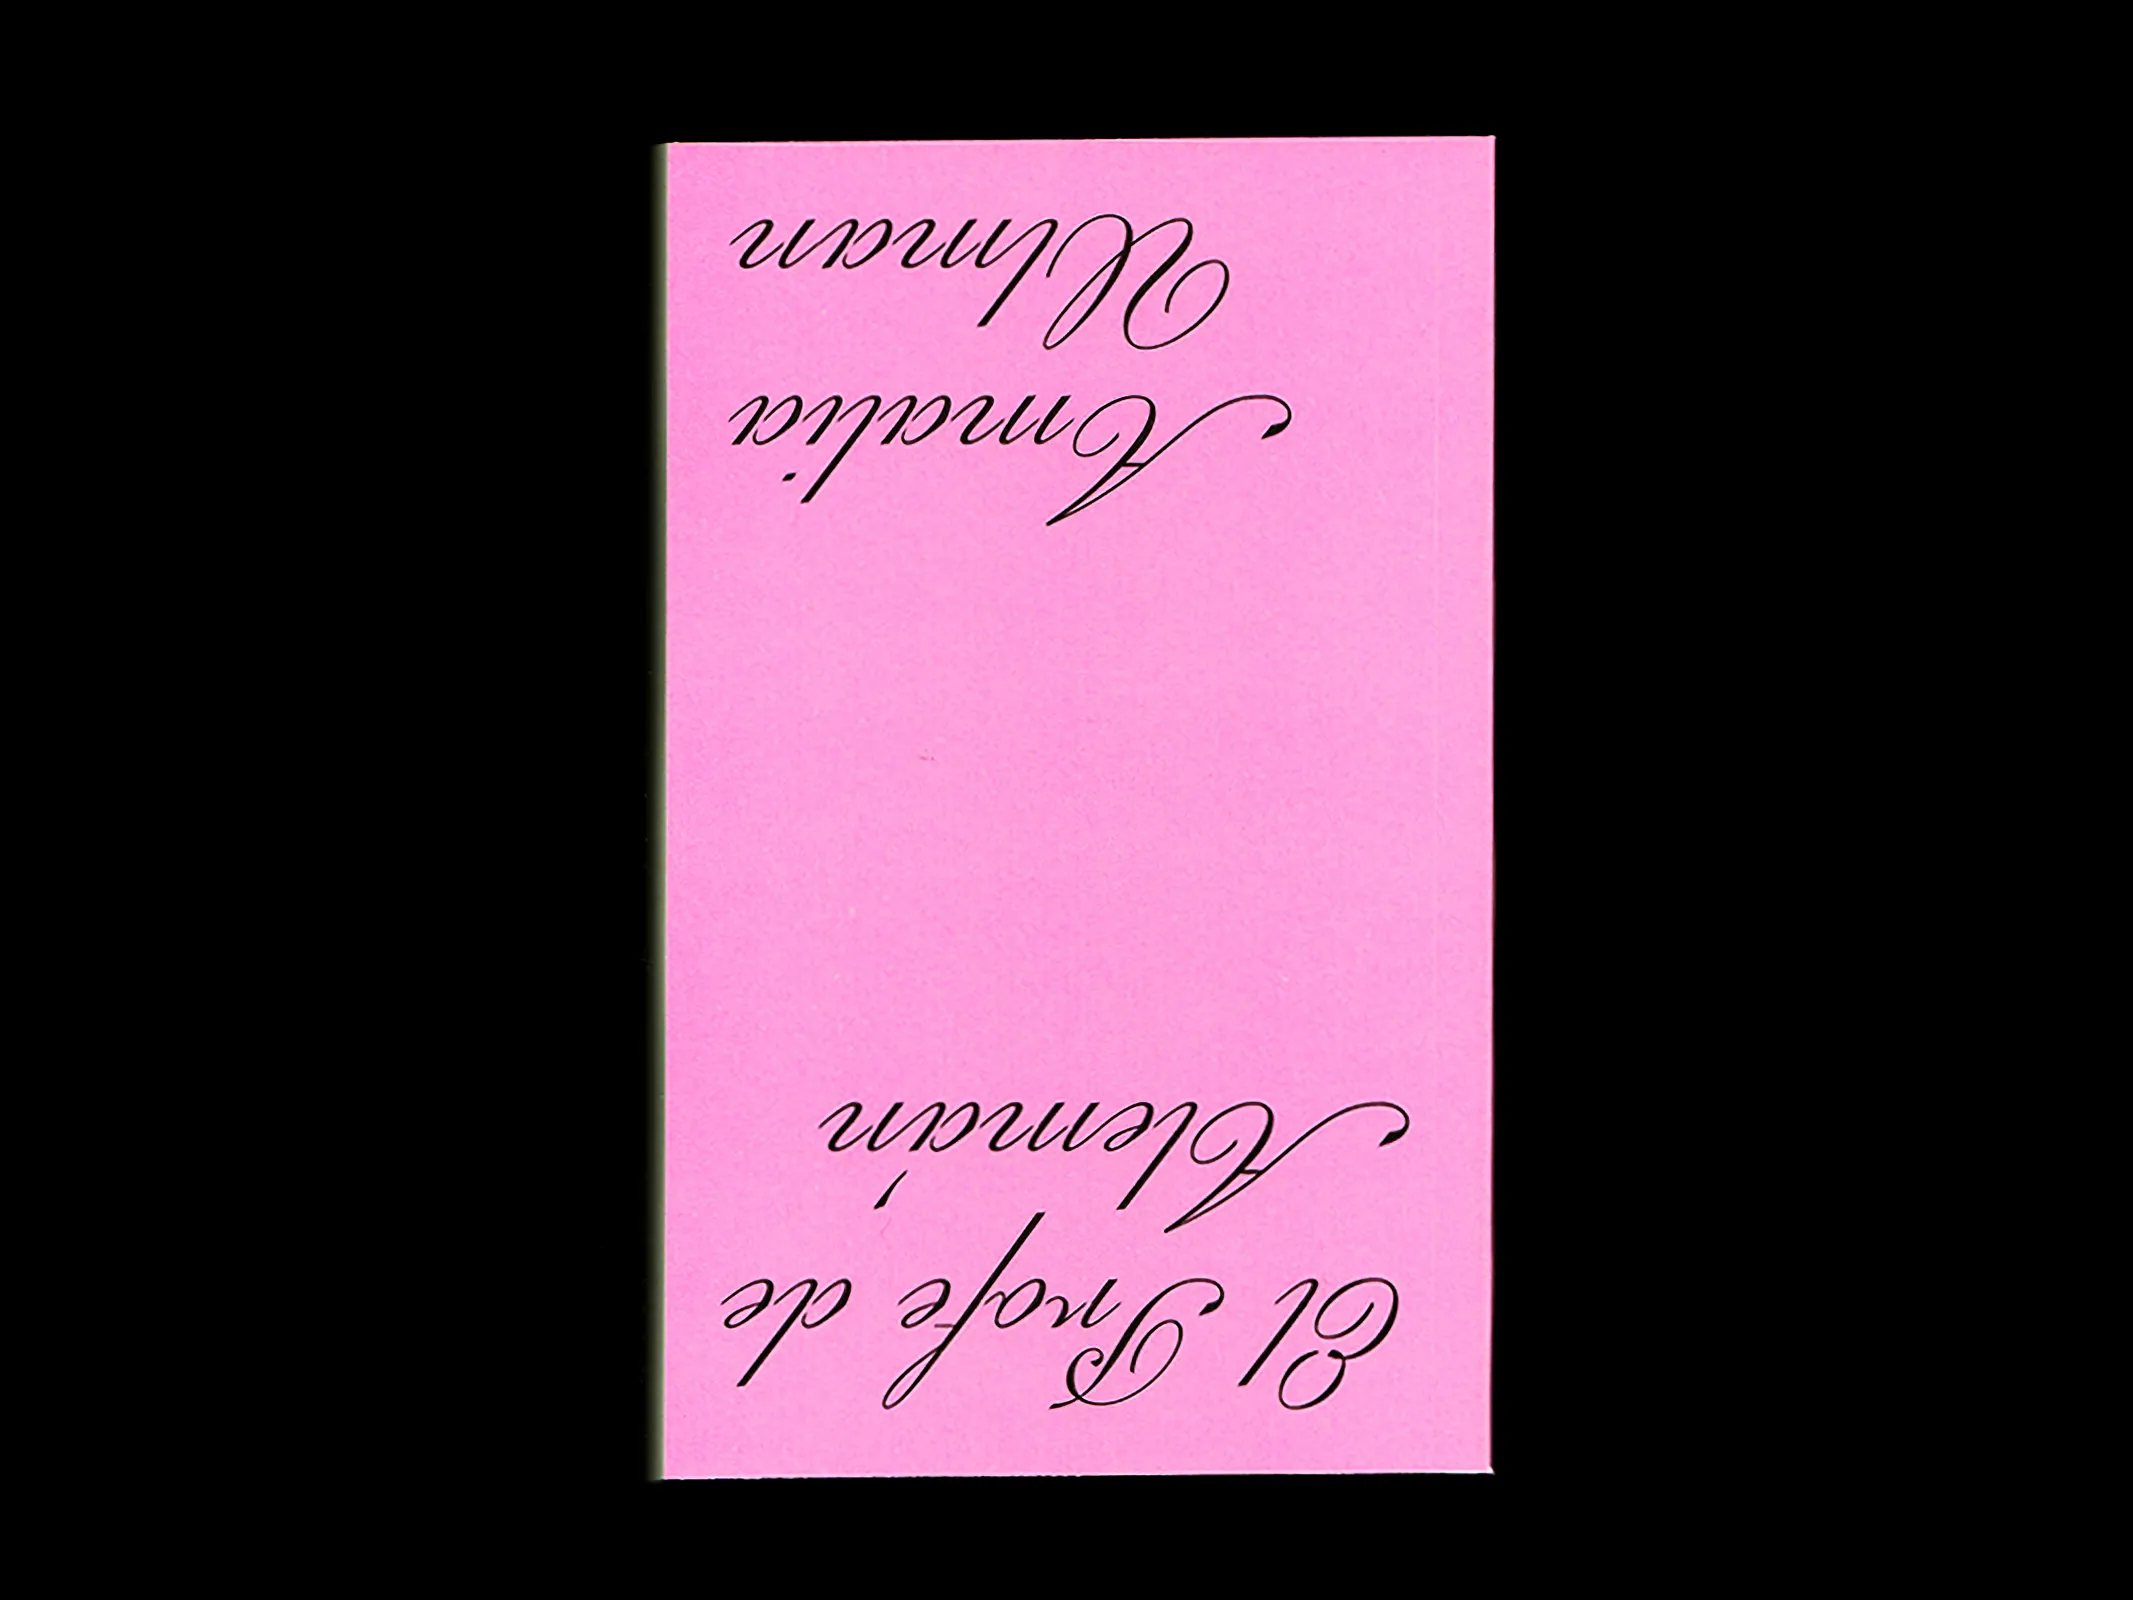 El Profe de
Alemán
Amalia
Ulman